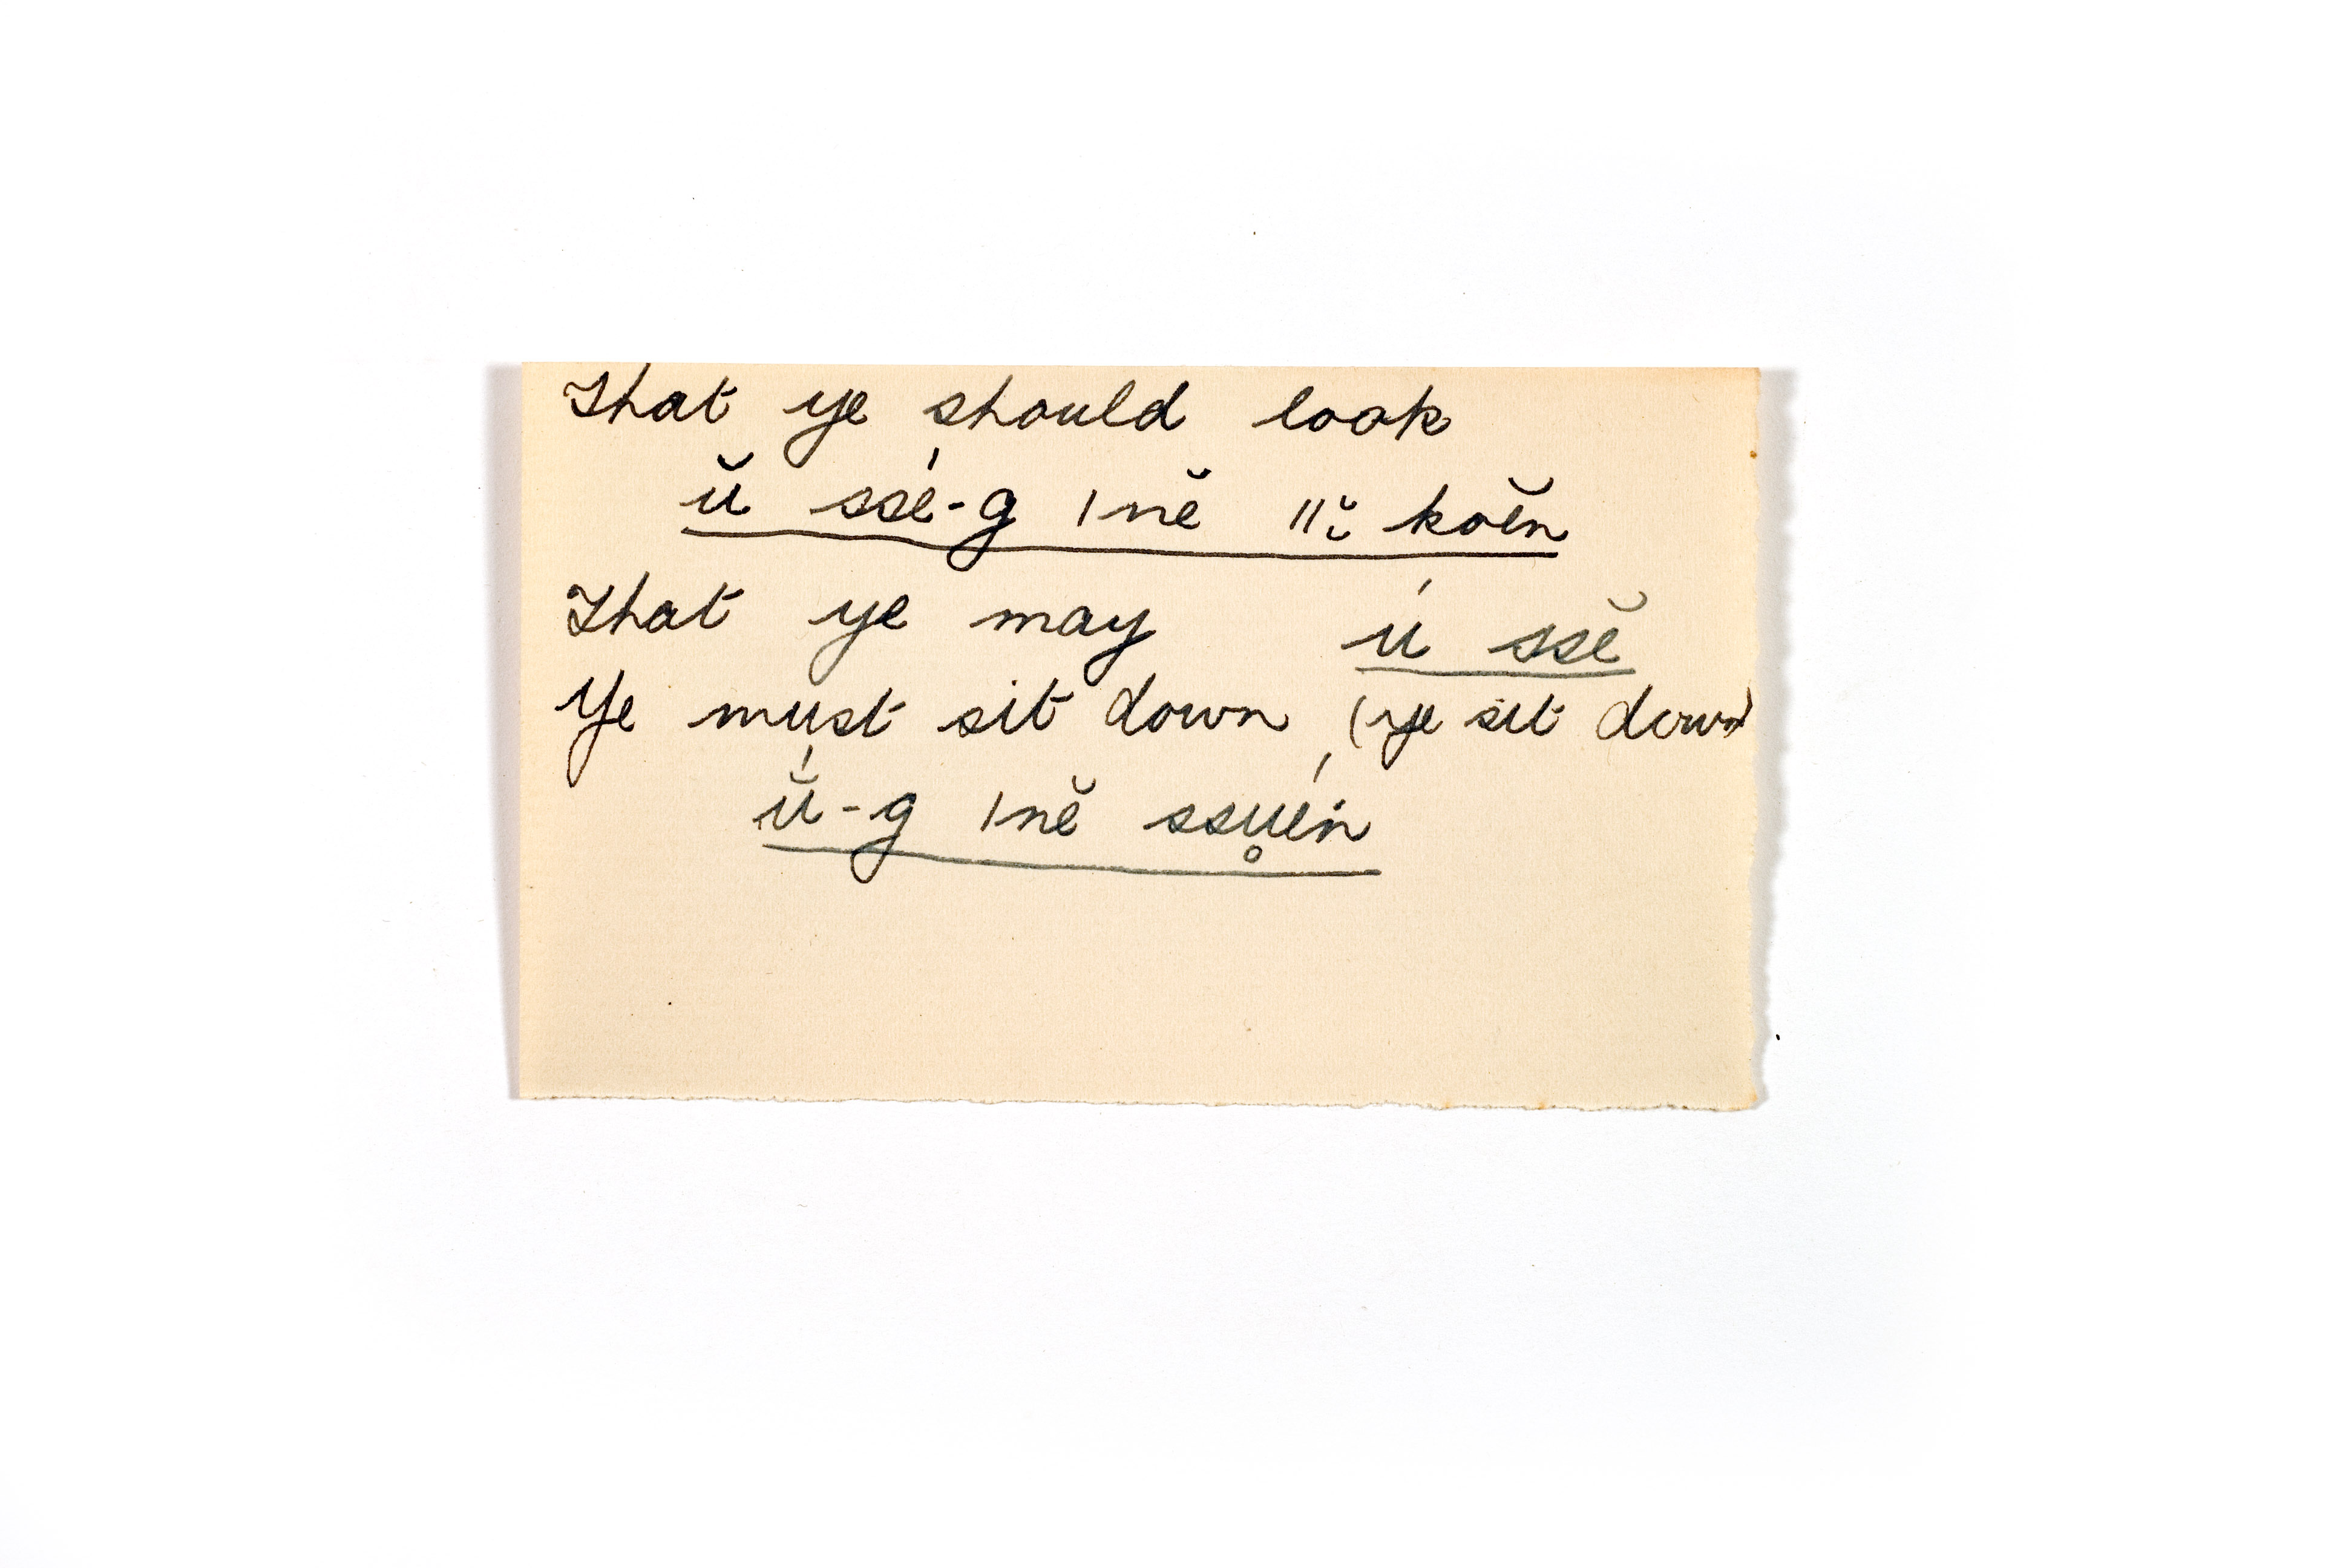 That ye should look
ŭ ssé-g ǀnĕ ǁĭ̆ kŏĕn
That ye may ú ssĕ
Ye must sit down (ye sit down)
ŭ́-g ǀnĕ ssu̥én